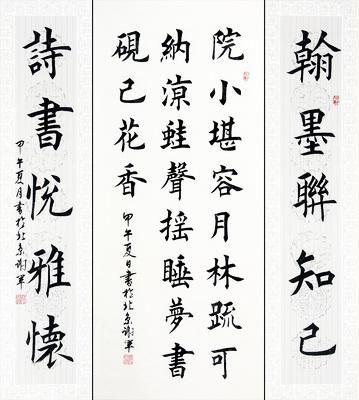 翰墨聯知己
院小堪容月林疏可
納涼蛙聲揺睡夢書
硯已花香
甲午夏日書於北京謝軍
詩書悅雅懷
甲午夏月書於北京謝軍